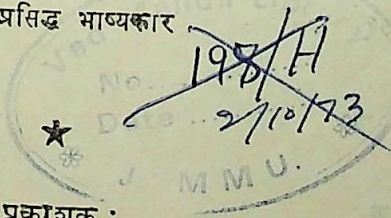 प्रसिद्ध भाष्यकार
198/H
No.
Date
2/10/73
JMMU.
प्रकाशक :